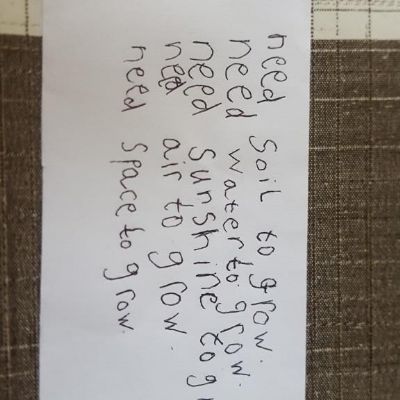 need soil to grow.
need water to grow.
need sunshine to g
need air to grow.
need space to grow.